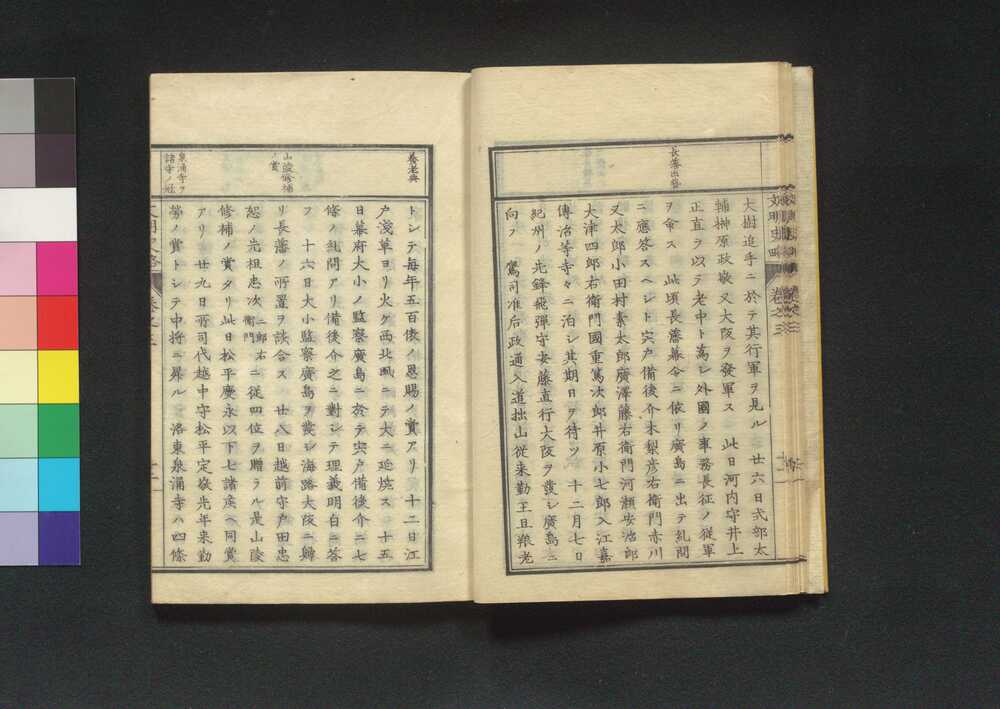 文明史略 卷之三
長藩出發
大樹追手ニ於テ其行軍ヲ見ル 廿六日式部太
輔榊原政敬又大阪ヲ發軍ス 此日河内守井上
正直ヲ以テ老中ト爲シ外國ノ事務長征ノ従軍
ヲ命ス 此頃長藩幕令ニ依リ廣島ニ出テ糺問
ニ應答スヘシト宍戸備後介木梨彦右衛門赤川
又太郎小田村素太郎廣澤藤右衛門河瀬安治郎
大津四郎右衛門國重篤次郎井原小七郎入江嘉
傳治等寺々ニ泊シ其期日ヲ待ツ 十二月七日
紀州ノ先鋒飛彈守安藤直行大阪ヲ發シ廣島ニ
向フ 鷹司准后政通入道拙山従来勤王且羪老
養老典
トシテ毎年五百俵ノ恩賜ノ賞アリ 十二日江
戸淺草ヨリ火ケ西北風ニテ大ニ延焼ス 十五
日幕府大小ノ監察廣島ニ於テ宍戸備後介ニ七
條ノ糺問アリ備後介之ニ對シテ理義明白ニ答
フ 十六日大小監察廣島ヲ發シ海路大阪ニ歸
リ長藩ノ所置ヲ談合ス 廿八日越前守戸田忠
山陵修補ノ賞
恕ノ先祖忠次二郎右衛門ニ従四位ヲ贈ラル是山陵
修補ノ賞タリ此日松平慶永以下七諸矦ヘ同賞
アリ 廿九日所司代越中守松平定敬先年来勤
勞ノ賞トシテ中將ニ昇ル 洛東泉涌寺ハ四條
泉涌寺ヲ
諸寺ノ